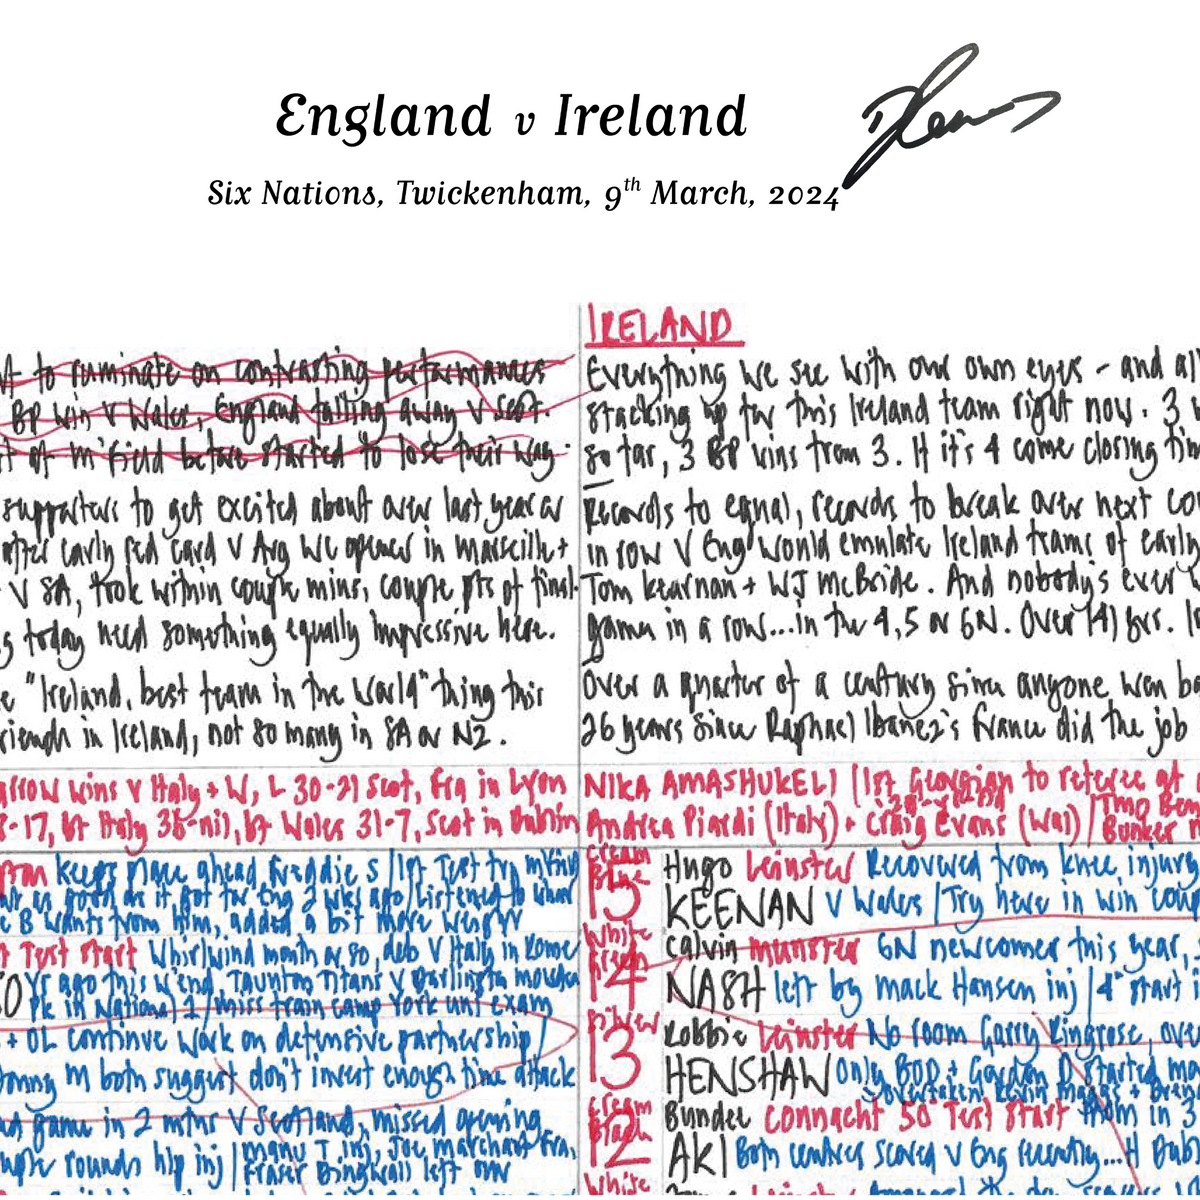 England v Ireland
Six Nations, Twickenham, 9th March, 2024
to ruminate on contrasting performances
BP win v Wales, England falling away v Scot.
of m'field before started to lose their way.
supporters to get excited about over last year or
after early red card v Arg we opened in Marseille +
v SA, took within couple mins, couple pts of final.
today need something equally impressive here.
"Ireland, best team in the World" thing this
in Ireland, not so many in SA or NZ.
wins v Italy + W, L 30-21 Scot, Fra in Lyon
-17, bt Italy 36-nil, bt Wales 31-7, Scot in Dublin
keeps place ahead Freddie S / 1st Test try mking
as good as it got for Eng 2 wks ago / Listened to what
B wants from him, added a bit more
Test start Whirlwind month or so, deb v Italy in Rome
Yr ago this w'end, Taunton Titans v Darlington Mowden
Pk in National 1 / miss train camp York uni exam
+ OL continue work on defensive partnership /
Jonny M both suggest don't invest enough time attack
game in 2 mths v Scotland, missed opening
couple rounds hip inj / Manu T inj, Joe Marchant Fra,
Fraser Dingwall left out
IRELAND
Everything we see with our own eyes - and al
stacking up for this Ireland team right now. 3
so far, 3 BP wins from 3. If it's 4 come closing tim
Records to equal, records to break over next co
in row v Eng would emulate Ireland teams of early
Tom Kiernan + WJ McBride. And nobody's ever
games in a row... in the 4, 5 or 6N. Over 141 yrs.
Over a quarter of a century since anyone won ba
26 years since Raphael Ibanez's France did the job
NIKA AMASHUKELI (1st Georgian to referee at
Andrea Piardi (Italy) + Craig Evans (Wal) / TMO Ben
Bunker
Cream
Blue
15 Hugo Leinster Recovered from knee injury
KEENAN v Wales / Try here in win
White
Green
14 Calvin Munster 6N newcomer this year,
NASH left by Mack Hansen inj / 4th start
Silver
13 Robbie Leinster No room Garry Ringrose, over
HENSHAW Only BOD + Gordon D started mo
overtaken Kevin Maggs +
Cream
Black
12 Bundee Connacht 50 Test start from in 3
AKI Both centres scored v Eng recently...H Dubl
White